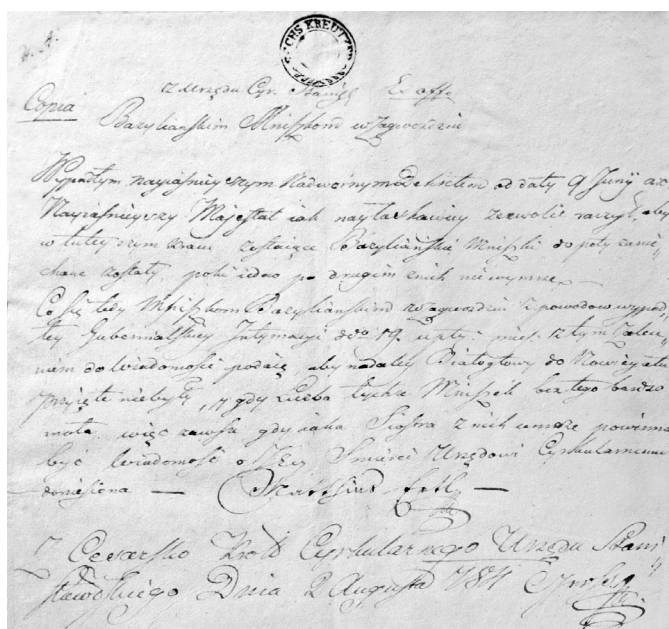 SECHS KREUTZER
Z Urzędu Cyr. Stanisł. Ex offo
Copia
Bazyliańskim Mniszkom w Zagwozdziu
Wypadłym nayjaśnieyszym Nadwornym Dekretem od daty 9 Junij a.c.
Nayjaśnieyszy Majestat iak nayłaskawiey zezwolić raczył, aby
w tuteyszym Kraiu zostaiące Bazyliańskie Mniszki do poty zanie„
chane zostały, poki iedna po drugiey z nich nie wymrze
Co się tedy Mniszkom Bazyliańskim w Zagwozdziu z powodow wypad„
łey Gubernialskiey Intymacyi ddo 19. upły: mies. z tym zalece„
niem do wiadomości podaię, aby nadaley Białogłowy do Nowicyatu
przyięte nie były, y gdy Liczba tychże Mniszek bez tego bardzo
mała, więc zawsze gdy iaka Siostra z nich umrze powinna
być wiadomość o Jey Smierci Urzędowi Cyrkularnemu
doniesiona —
Z Cesarsko Krolo Cyrkularnego Urzędu Stani„
sławskiego Dnia 2 Augusta 784